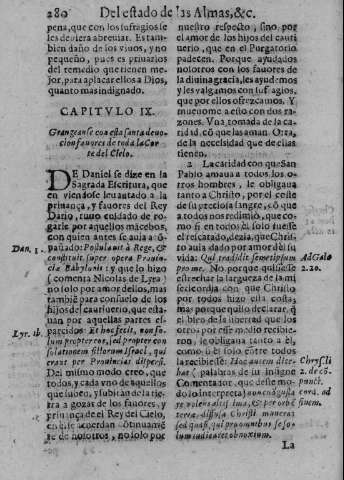 280 Del estado de las Almas, &c.
pena, que con los sufragios se
les deviera abreuiar. Es tam-
bien daño de los viuos, y no
pequeño, pues es priuarlos
del remedio que tienen me-
jor, para aplacar ellos a Dios,
quanto mas indignado.
CAPITVLO IX.
Grangeanse con esta santa deuo-
cion fauores de toda la Cor-
te del Cielo.
DE Daniel se dize en la
Sagrada Escritura, que
en viendose leuantado a la
priuança, y fauores del Rey
Dario, tuuo cuidado de ro-
garle por aquellos mácebos,
con quien antes se auia acõ-
Dan. 1.
pañado: Postulauit à Rege, &
constituit super opera Prouin-
cia Babylonis: y que lo hizo
(comenta Nicolas de Lyra)
no solo por amor dellos, mas
tambiẽ para consuelo de los
hijos del cautiuerio, que esta-
uan por aquellas partes es-
parcidos:
Lyr. ib.
Et hoc fecit, non so-
lum propter eos, sed propter con-
solationem filiorum Israel, qui
erant per Prouincias dispersi.
Del mismo modo creo, que
todos, y cada vno de aquellos
que
rra a gozar de los fauores, y
priuança de el Rey del Cielo,
en
te de nosotros, no solo por
nuestro respecto, sino por
el amor de los hijos del cauti
uerio, que en el Purgatorio
padecen. Porque ayudados
nosotros con los fauores de
la diuina gracia, les ayudemos
y les valgamos con sufragios,
que por ellos ofrezcamos. Y
mueuome a esto con dos ra-
zones. Vna tomada de la ca-
ridad cõ que las aman. Otra,
de la necesidad que de ellas
tienen.
2 La caridad con que San
Pablo amaua a todos los o-
tros hombres, le obligaua
tanto a Christo, por el coste
de su preciosa sangre, cõ que
a todos nos redimiò, que co-
mo si en todos èl solo fuesse
el rescatado, dezia, que Chris-
to auia dado por amor dèl su
vida: Qui tradidit semetipsum
Ad Gala
2. 20.
pro me. No porque quisiesse
estrechar la largueza de la mi
sericordia con que Christo
por todos hizo esta costa,
mas porque quiso declarar, q̃
el bien de la libertad que los
otros por este medio recibie-
ron, le obligaua tanto a èl,
como si èl solo entre todos
la recibiesse: Hoc autem diter
Chrysost.
bat ( palabras de su insigne
2. de cõ-
Comentador, que deste mo-
punct.
do lo interpreta)
cord. ad
finem.
terræ, diffusa Christi munera:
sed quasi, qui pro omnibus se so-
lum iudicaret obnoxium.
La